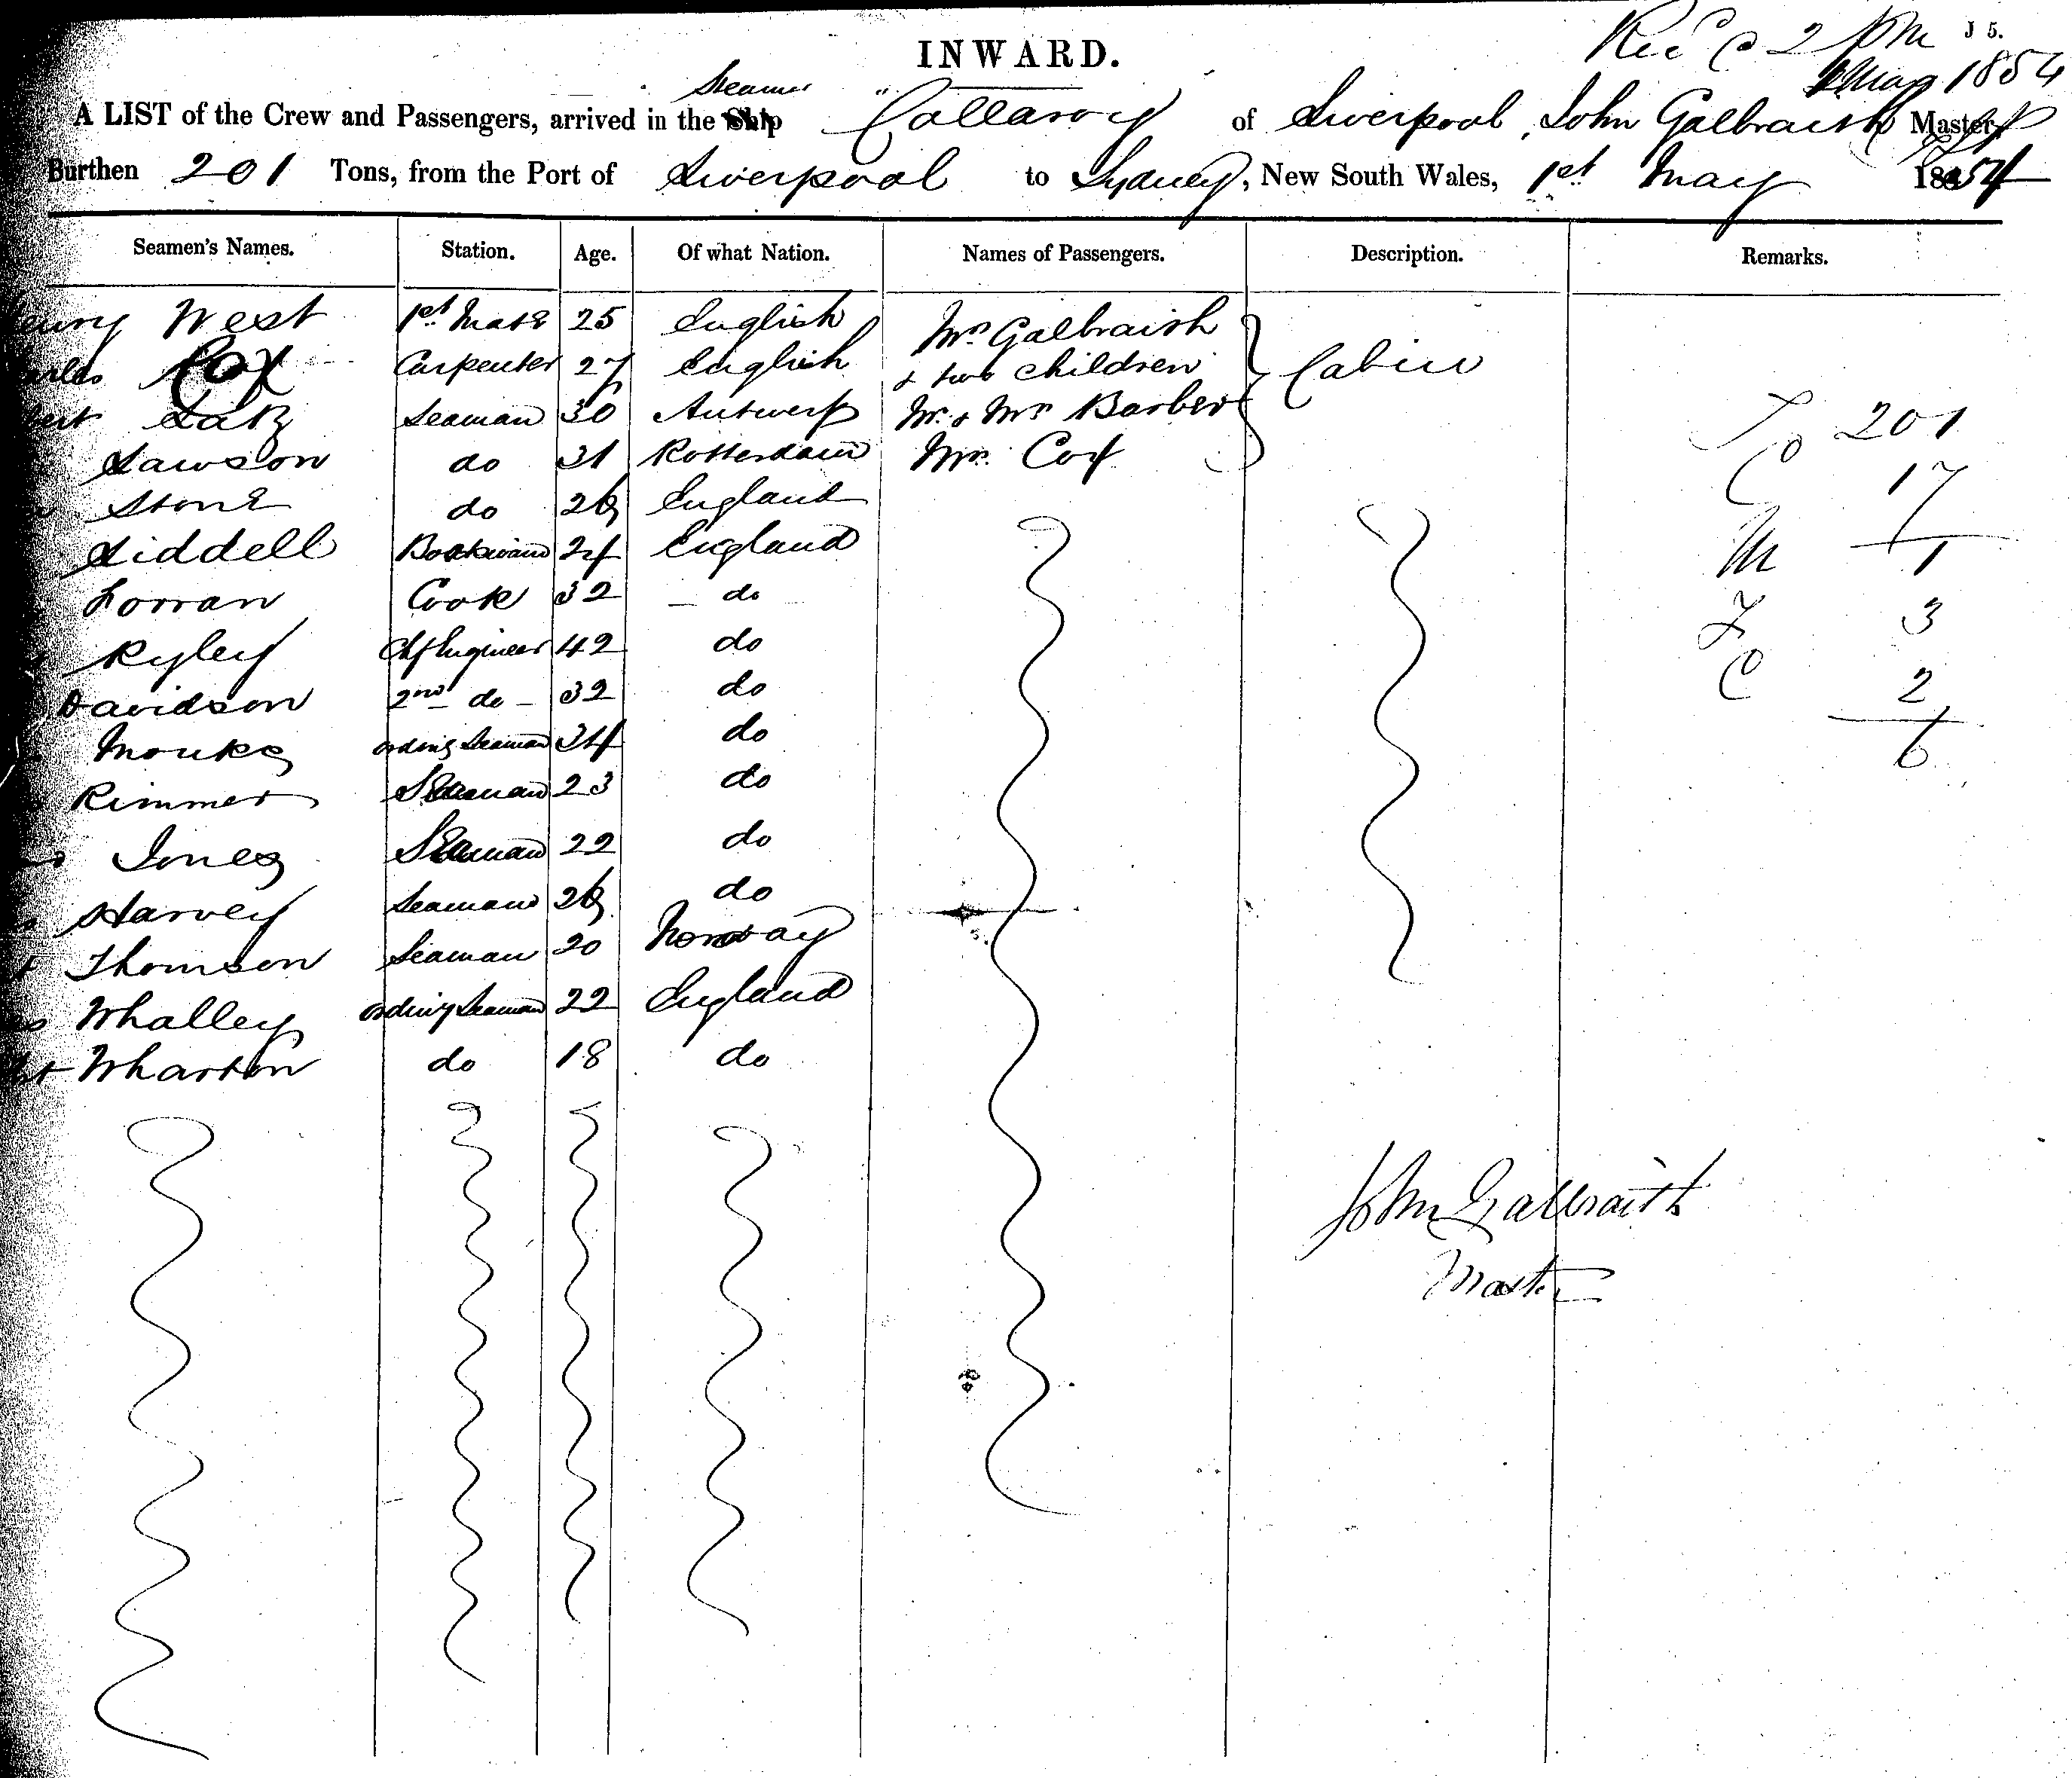 J 5.
INWARD.
Recd @ 2 PM
May 1854
Steamer
A LIST of the Crew and Passengers, arrived in the Ship "Collaroy of Liverpool, John Galbraith Master,
Burthen 201 Tons, from the Port of Liverpool to Sydney, New South Wales, 1st May 1854
Seamen's Names. Station. Age. Of what Nation. Names of Passengers. Description. Remarks.
West 1st Mate 25 English Mrs Galbraith
Cox Carpenter 27 English & two children Cabin
Seaman 30 Antwerp Mr. & Mrs Barber T 201
Lawson do 31 Rotterdam Mrs. Cox C 17
Stone do England
Liddell Boatswain 24 England M 1
Lorran Cook 32 do F 3
Ryley Chf Engineer 42 do
Davidson 2nd do 32 do C 2
Monks Seaman 34 do 6
Rimmer Seaman 23 do
Jones Seaman 22 do
Harvey Seaman do
Thomson Seaman 20 Norway
Whalley Seaman 22 England
Wharton do 18 do
John Galbraith
Master